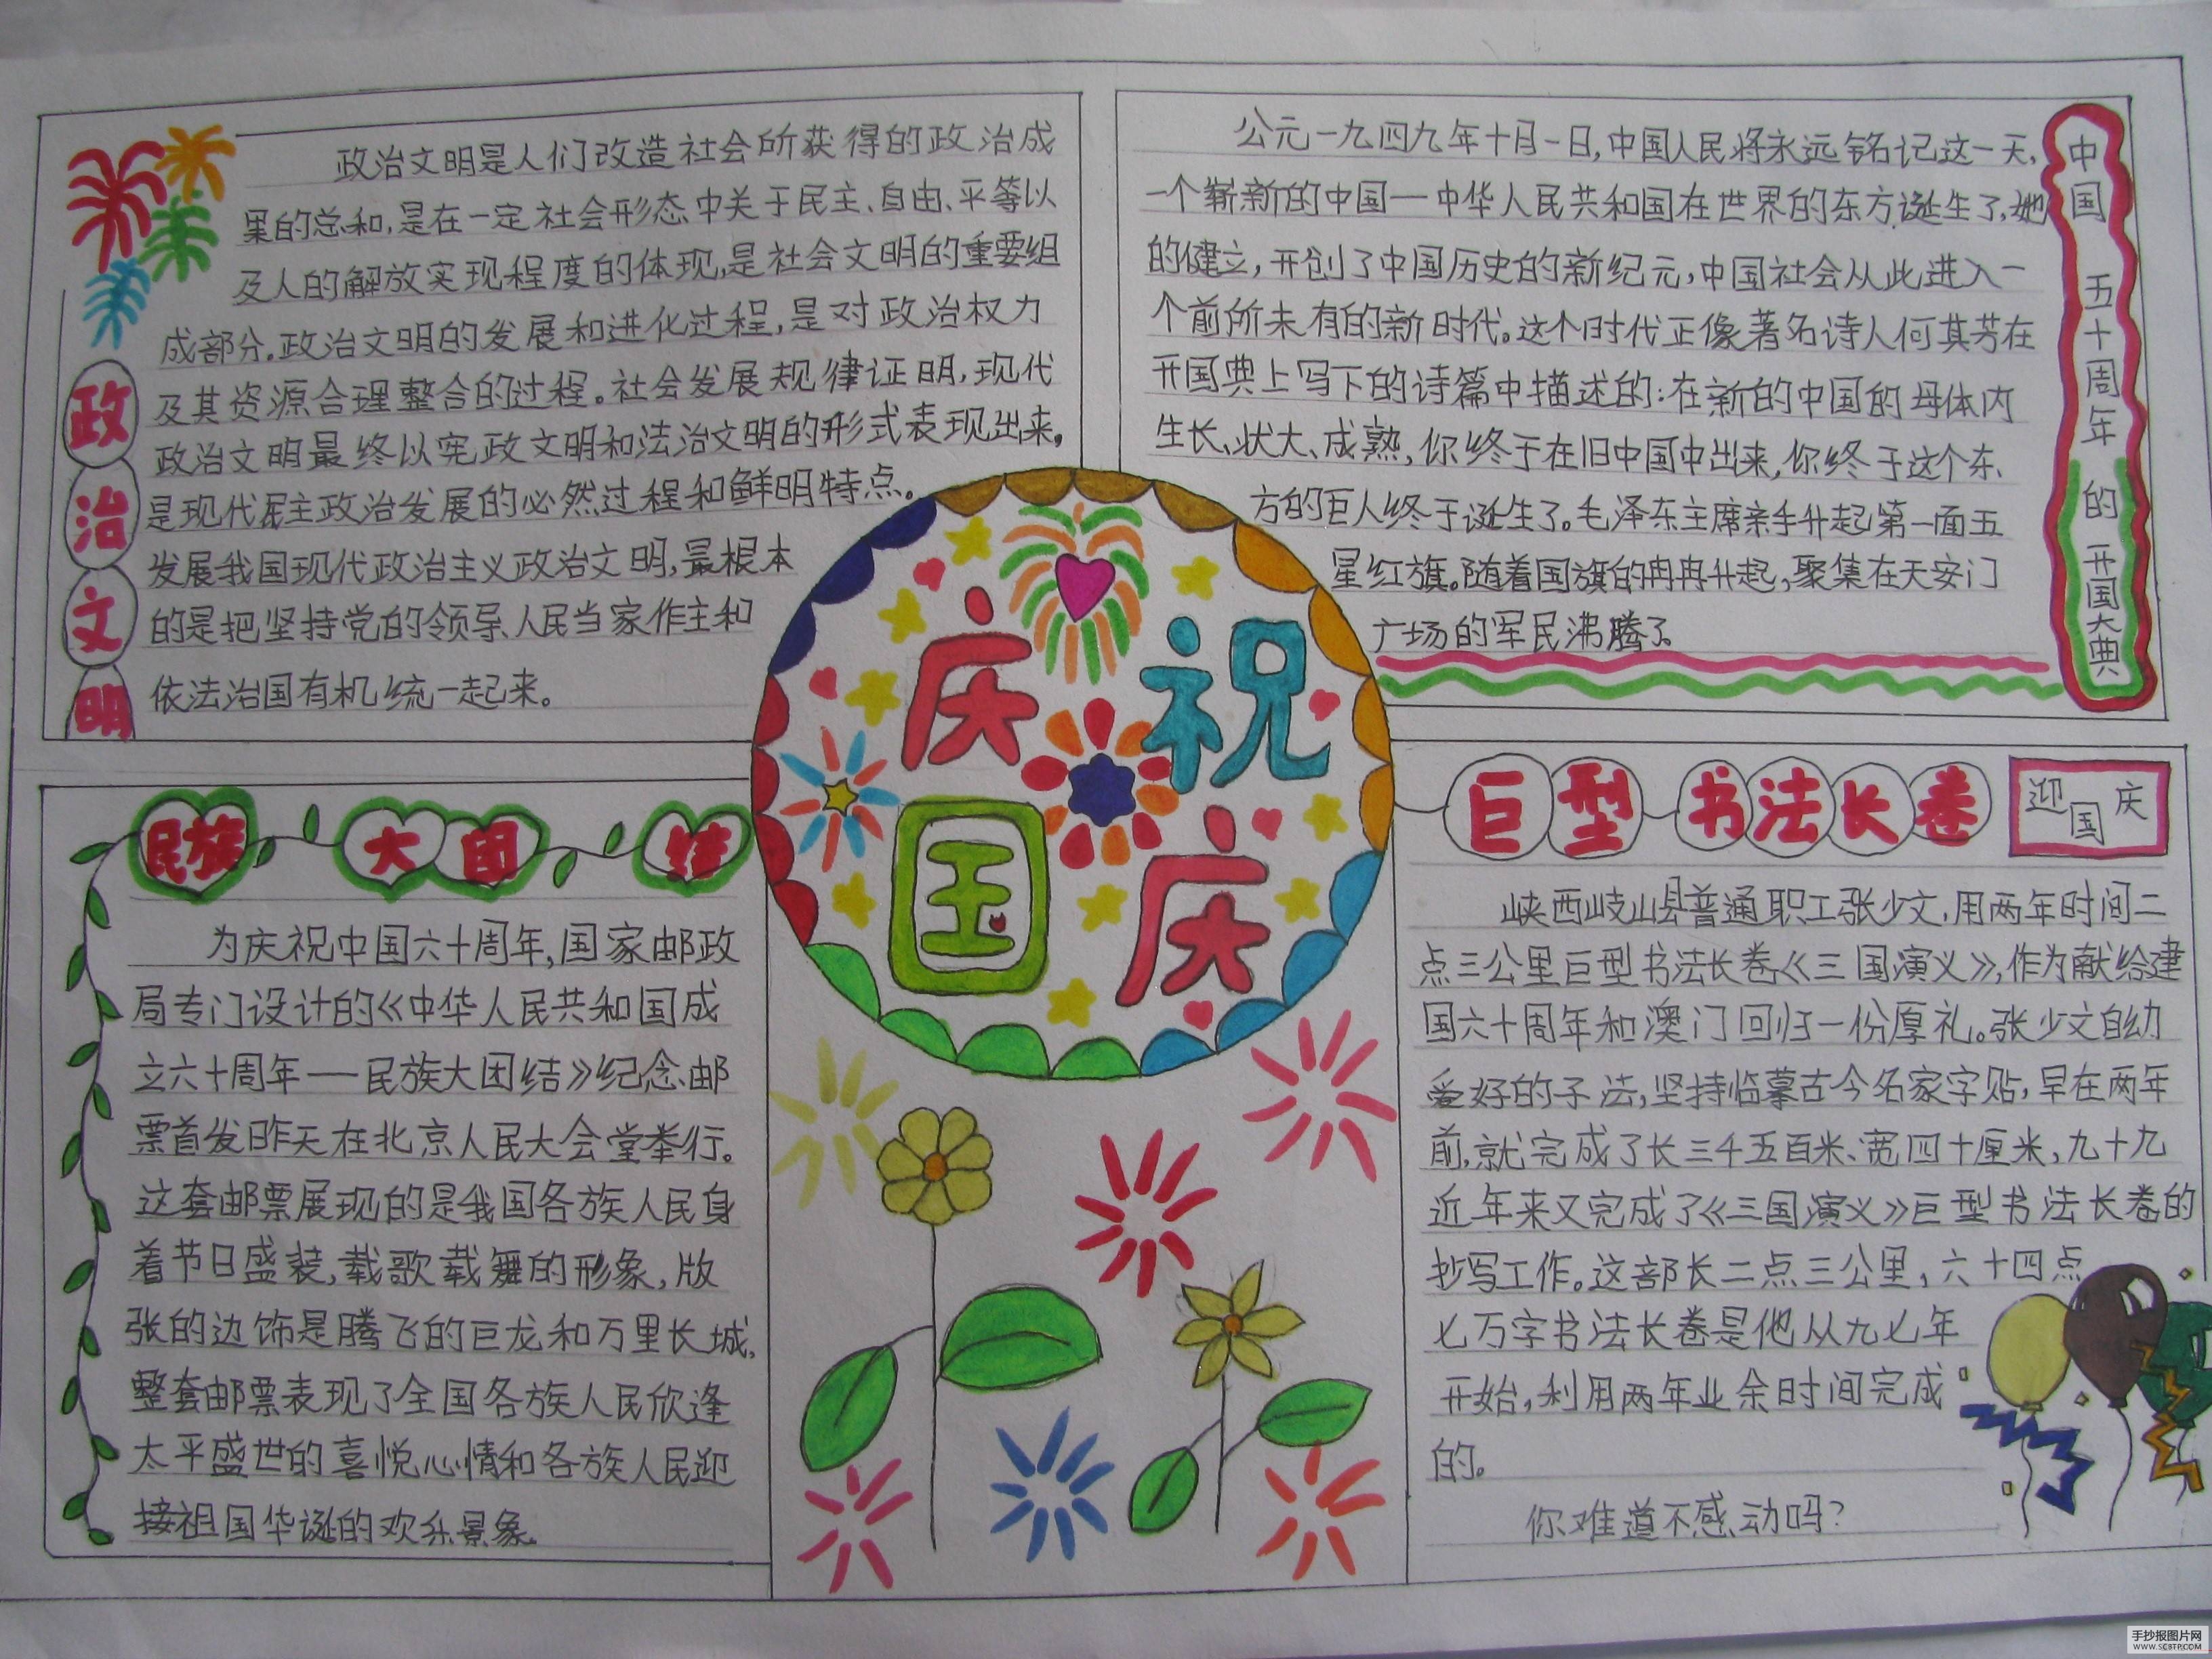 政治文明
政治文明是人们改造社会所获得的政治成
果的总和,是在一定社会形态中关于民主、自由、平等以
及人的解放实现程度的体现,是社会文明的重要组
成部分。政治文明的发展和进化过程,是对政治权力
及其资源合理整合的过程。社会发展规律证明,现代
政治文明最终以宪政文明和法治文明的形式表现出来,
是现代民主政治发展的必然过程和鲜明特点。
发展我国现代政治主义政治文明,最根本
的是把坚持党的领导、人民当家作主和
依法治国有机统一起来。
中国五十周年的开国大典
公元一九四九年十月一日,中国人民将永远铭记这一天,
一个崭新的中国—中华人民共和国在世界的东方诞生了,她
的健立,开创了中国历史的新纪元,中国社会从此进入一
个前所未有的新时代。这个时代正像著名诗人何其芳在
开国典上写下的诗篇中描述的:在新的中国的母体内
生长、状大、成熟,你终于在旧中国中出来,你终于这个东
方的巨人终于诞生了。毛泽东主席亲手升起第一面五
星红旗。随着国旗的冉冉升起,聚集在天安门
广场的军民沸腾了。
庆祝
国庆
民族大团结
为庆祝中国六十周年,国家邮政
局专门设计的《中华人民共和国成
立六十周年——民族大团结》纪念邮
票首发昨天在北京人民大会堂举行。
这套邮票展现的是我国各族人民身
着节日盛装,载歌载舞的形象,版
张的边饰是腾飞的巨龙和万里长城,
整套邮票表现了全国各族人民欣逢
太平盛世的喜悦心情和各族人民迎
接祖国华诞的欢乐景象。
巨型书法长卷
迎国庆
峡西岐山县普通职工张少文,用两年时间二
点三公里巨型书法长卷《三国演义》,作为献给建
国六十周年和澳门回归一份厚礼。张少文自幼
爱好的子法,坚持临摹古今名家字贴,早在两年
前,就完成了长三千五百米、宽四十厘米,九十九
近年来又完成了《三国演义》巨型书法长卷的
抄写工作。这部长二点三公里,六十四点
七万字书法长卷是他从九七年
开始,利用两年业余时间完成
的。
你难道不感动吗?
手抄报图片网
WWW.SCBTP.COM